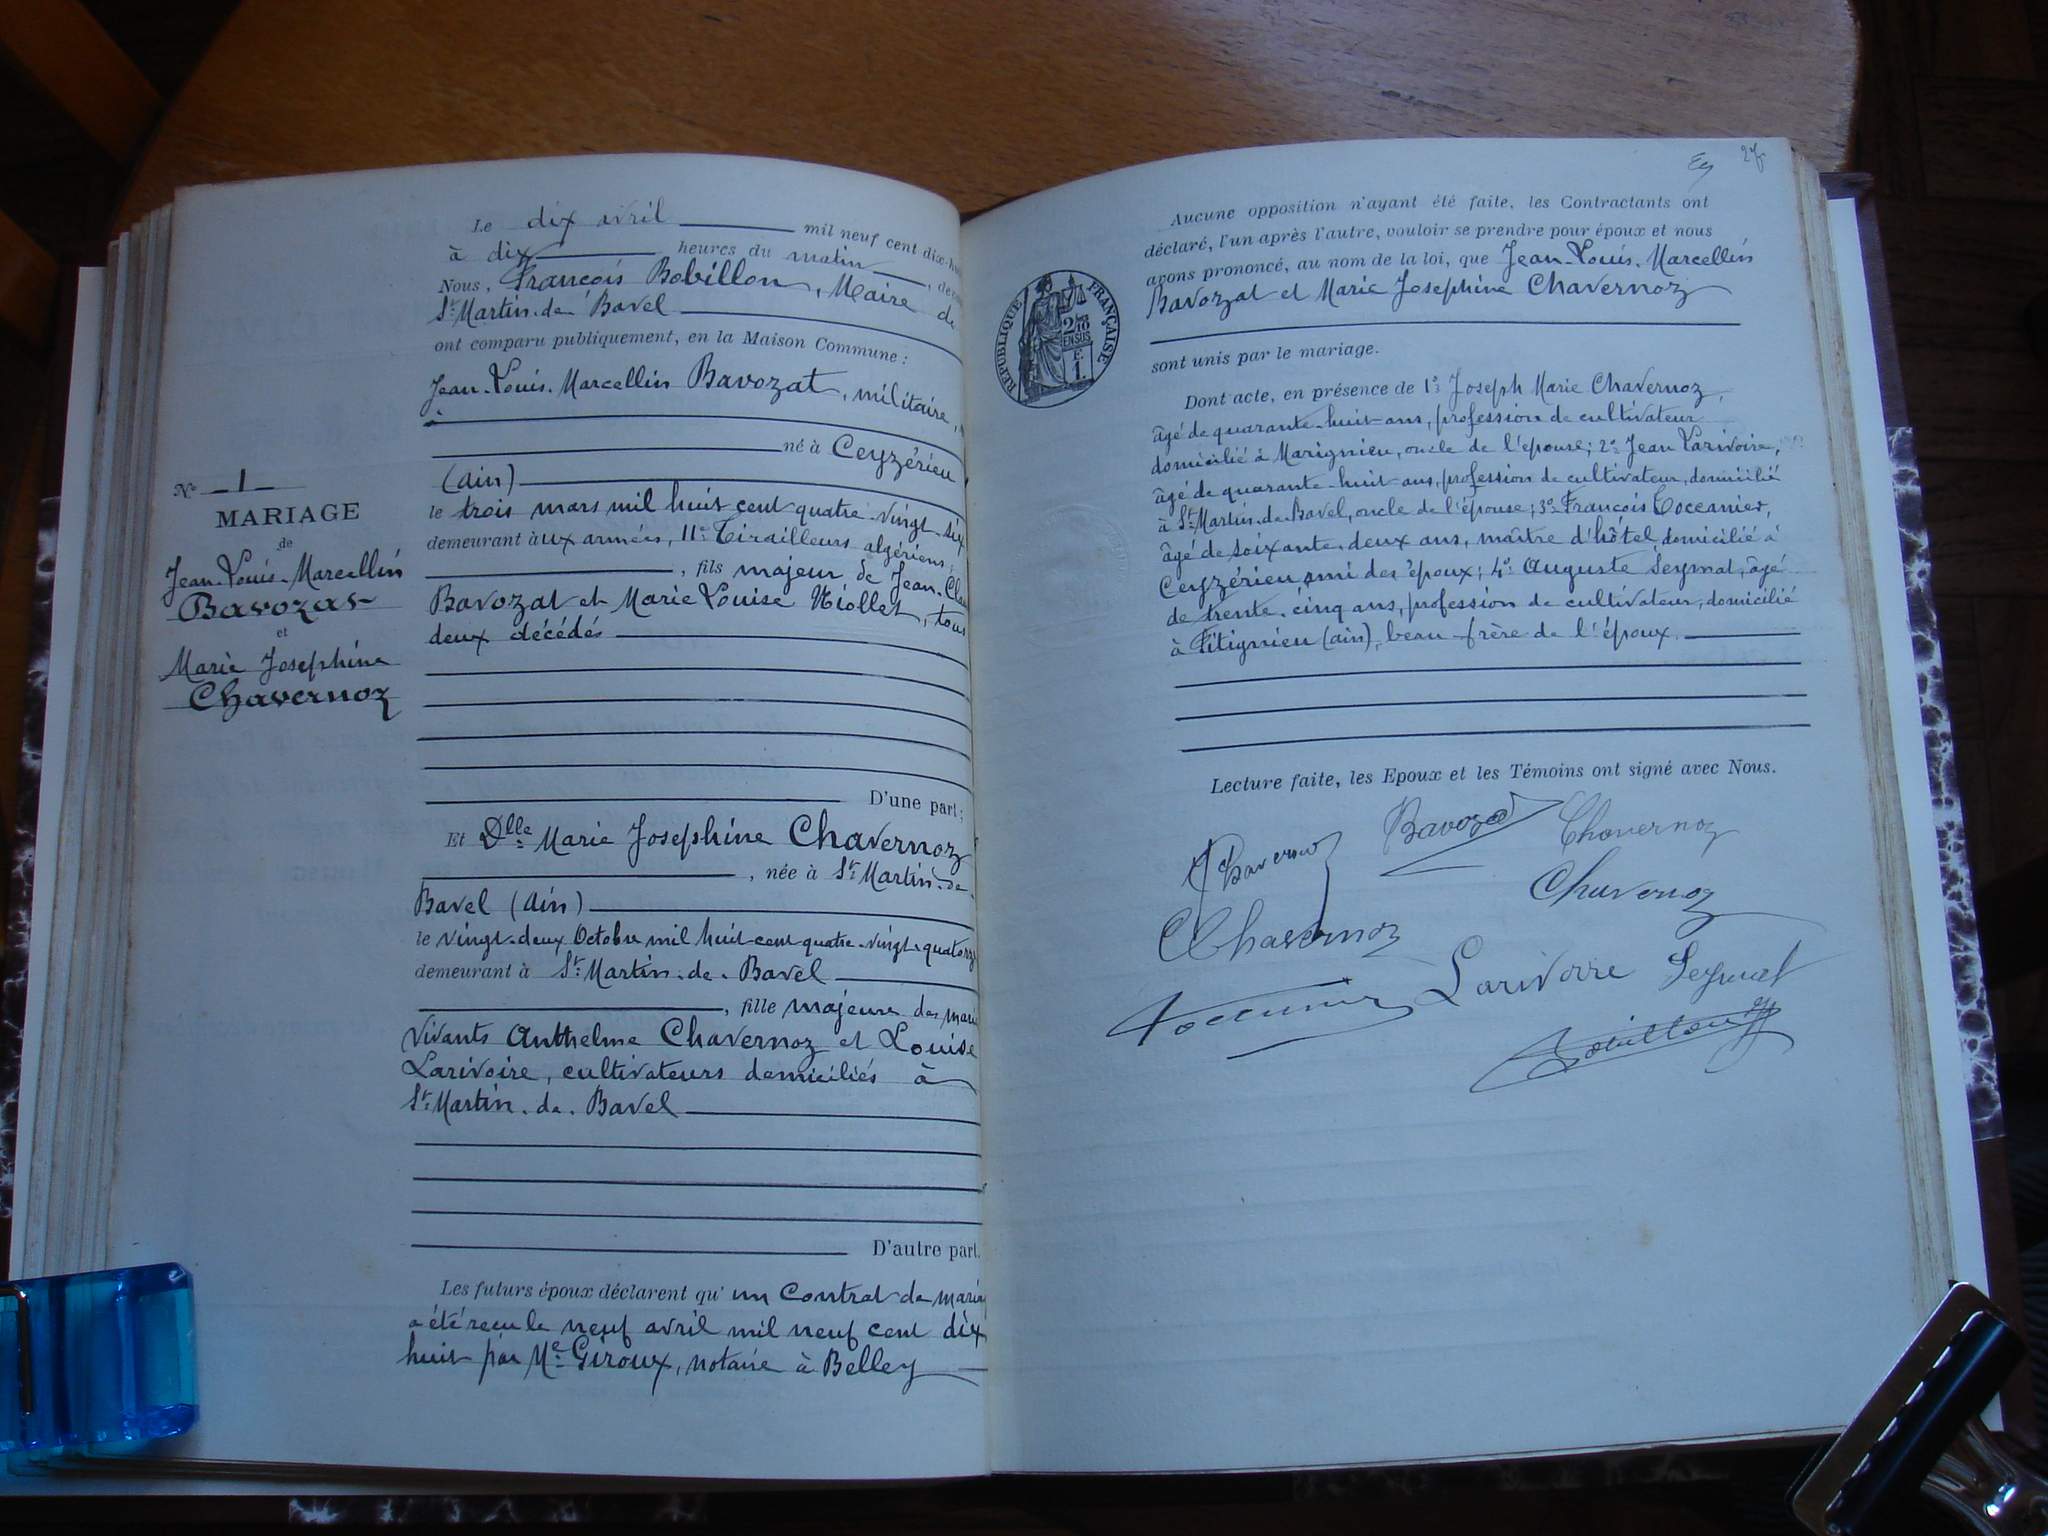 N° 1
MARIAGE
de
Jean-Louis-Marcellin
Bavozat
et
Marie Josephine
Chavernoz
Le dix avril mil neuf cent dix-hu
à dix heures du matin, deva
Nous, François Bobillon, Maire de
St Martin-de Bavel
ont comparu publiquement, en la Maison Commune :
Jean-Louis-Marcellin Bavozat, militaire,
né à Ceyzérieu
(ain)
le trois mars mil huit cent quatre-vingt-six
demeurant aux armées, 11e Tirailleurs algériens,
, fils majeur de Jean-Clau
Bavozat et Marie Louise Niollet, tous
deux décédés
D'une part ;
Et Dlle Marie Josephine Chavernoz
, née à St Martin-de-
Bavel (Ain)
le vingt-deux Octobre mil huit cent quatre-vingt-quatorze
demeurant à St Martin-de-Bavel
, fille majeure des mari
vivants Anthelme Chavernoz et Louise
Larivoire, cultivateurs domiciliés à
St Martin-de-Bavel
D'autre part.
Les futurs époux déclarent qu'un Contrat de maria
a été reçu le neuf avril mil neuf cent dix
huit par Me Giroux, notaire à Belley
27
Aucune opposition n'ayant été faite, les Contractants ont
déclaré, l'un après l'autre, vouloir se prendre pour époux et nous
avons prononcé, au nom de la loi, que Jean-Louis-Marcellin
Bavozat et Marie Josephine Chavernoz
sont unis par le mariage.
RÉPUBLIQUE FRANÇAISE
2/10
EN SUS
F.
1.
Dont acte, en présence de 1° Joseph Marie Chavernoz,
âgé de quarante-huit ans, profession de cultivateur
domicilié à Marignieu, oncle de l'épouse ; 2° Jean Larivoire,
âgé de quarante-huit ans, profession de cultivateur, domicilié
à St Martin-de-Bavel, oncle de l'épouse ; 3° François Toccanier,
âgé de soixante-deux ans, maître d'hôtel domicilié à
Ceyzérieu, ami des époux ; 4° Auguste Seymat, âgé
de trente-cinq ans, profession de cultivateur, domicilié
à Flignieu (ain), beau-frère de l'époux.
Lecture faite, les Epoux et les Témoins ont signé avec Nous.
J Chavernoz Bavozat Chavernoz
Chavernoz
Chavernoz
Toccanier Larivoire Seymat
Bobillon